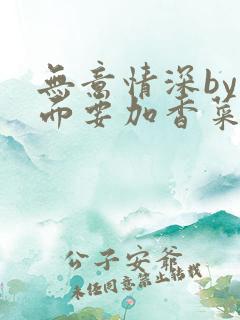 無意情深by
而要加香菜
公子安爺
未经同意禁止转载